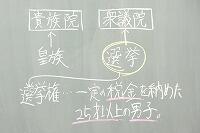 貴族院 衆議院
皇族 選挙
選挙権…一定の税金を納めた
25才以上の男子。